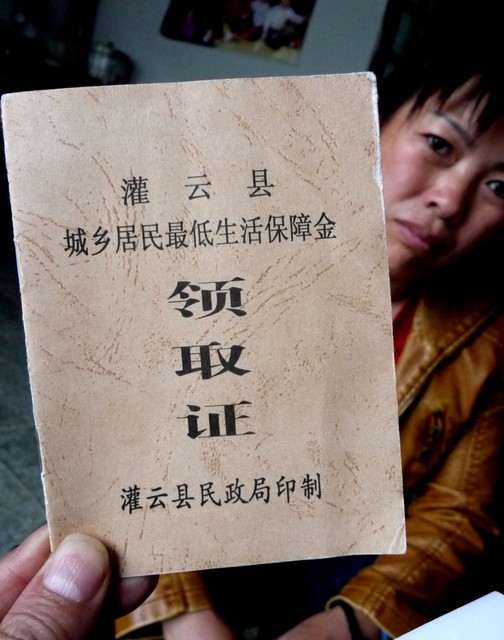 灌云县
城乡居民最低生活保障金
领
取
证
灌云县民政局印制